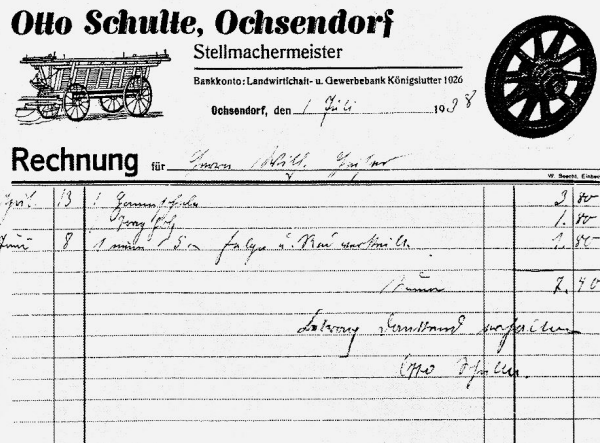 Otto Schulte, Ochsendorf
Stellmachermeister
Bankkonto: Landwirtschaft- u. Gewerbebank Königslutter 1026
Ochsendorf, den 1 Juli 1938
Rechnung für Herrn Wilh.
W. Seecht, Einbeck
April 13 1 3 80
1. 80
Juni 8 1 neue Felge u. 1. 80
Summa 7. 40
Betrag dankend erhalten
Otto Schulte.